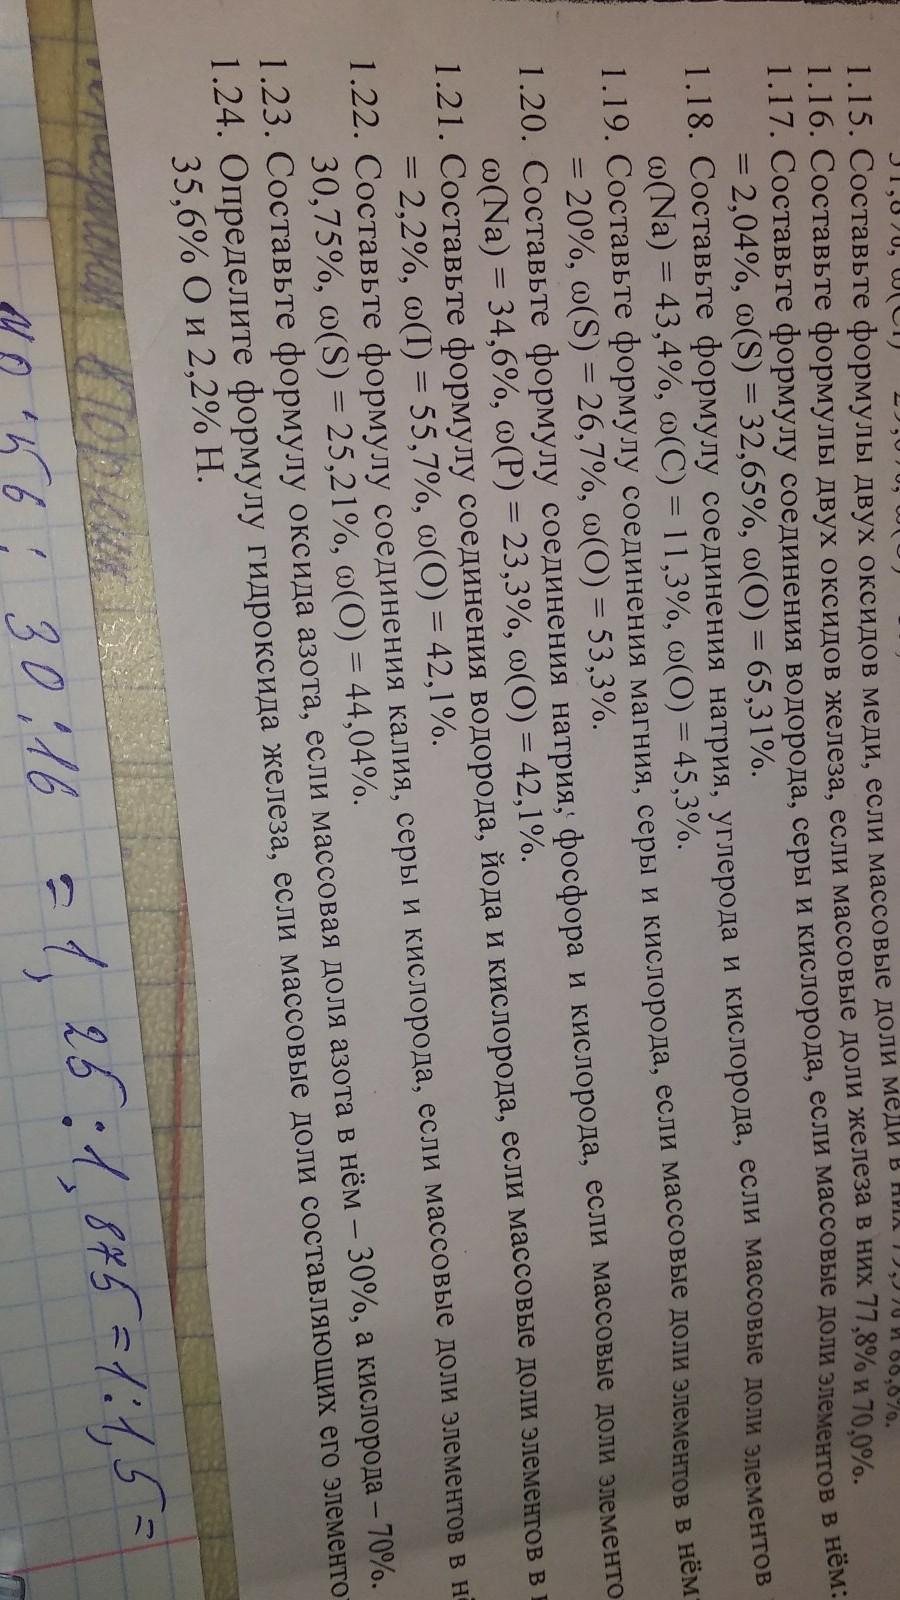 1.15. Составьте формулы двух оксидов меди, если массовые доли меди в них
1.16. Составьте формулы двух оксидов железа, если массовые доли железа в них 77,8% и 70,0%.
1.17. Составьте формулу соединения водорода, серы и кислорода, если массовые доли элементов в нём:
= 2,04%, ω(S) = 32,65%, ω(O) = 65,31%.
1.18. Составьте формулу соединения натрия, углерода и кислорода, если массовые доли элементов
ω(Na) = 43,4%, ω(C) = 11,3%, ω(O) = 45,3%.
1.19. Составьте формулу соединения магния, серы и кислорода, если массовые доли элементов в нём
= 20%, ω(S) = 26,7%, ω(O) = 53,3%.
1.20. Составьте формулу соединения натрия, фосфора и кислорода, если массовые доли элементо
ω(Na) = 34,6%, ω(P) = 23,3%, ω(O) = 42,1%.
1.21. Составьте формулу соединения водорода, йода и кислорода, если массовые доли элементов в
= 2,2%, ω(I) = 55,7%, ω(O) = 42,1%.
1.22. Составьте формулу соединения калия, серы и кислорода, если массовые доли элементов в
30,75%, ω(S) = 25,21%, ω(O) = 44,04%.
1.23. Составьте формулу оксида азота, если массовая доля азота в нём – 30%, а кислорода – 70%.
1.24. Определите формулу гидроксида железа, если массовые доли составляющих его элементо
35,6% O и 2,2% H.
: 30:16 = 1,25:1,875=1:1,5=